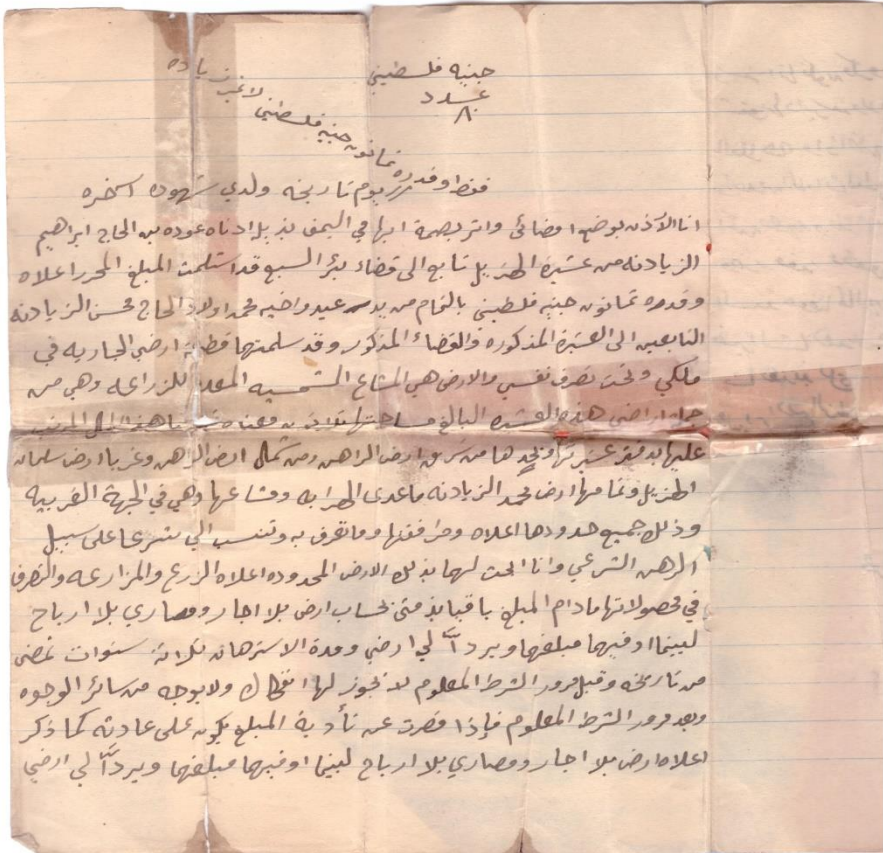 جنيه فلسطيني
عدد
٨٠
ثمانون جنيه فلسطيني لا غير زياده
فقط وقدره يوم تاريخه ولدي شهوده اسخره
انا الآذن بوضع امضائي واثر بصمة ابهامي اليمنى بذيله ادناه عوده بن الحاج ابراهيم
الزيادنه من عشيرة الهزيل تابع الى قضاء بئر السبع قد استلمت المبلغ المحرر اعلاه
وقدره ثمانون جنيه فلسطيني بالتمام من يد عبد واخيه محمد اولاد الحاج محسن الزيادنه
التابعين الى العشيرة المذكوره والقضاء المذكور وقد سلمتهما قطعة ارضي الجاريه في
ملكي وتحت تصرف نفسي والارض هي المشاع الشمسيه المعده للزراعه وهي من
اراضي هذه العشيره البالغ مساحتها ثلاثة المال المرتب
عليها بدفتر عشيرتها ويحدها من شرق ارض الراهن ومن شمال ارض الراهن وغربا ارض سلمان
الهزيل وتمامها ارض محمد الزيادنه ماعدى الهرابه ومشاعها وهي في الجهة الغربيه
وذلك جميع حدودها اعلاه ومرافقها وماتعرف به وتنسب الي شرعا على سبيل
الرهن الشرعي وانا ابحت لهما بذلك الارض المحدوده اعلاه الزرع والمزارعه والتصرف
في محصولاتها مادام المبلغ باقيا بذمتي بحساب ارض بلا اجار ومصاري بلا ارباح
لبينما اوفيهما مبلغهما ويردا لي ارضي ومدة الاسترهان ثلاثة سنوات تمضى
من تاريخه وقبل مرور الشرط المعلوم لا تجوز لها انفكاك ولا بوجه من سائر الوجوه
وبعد مرور الشرط المعلوم فإذا قصرت عن تأدية المبلغ يكون على عادته كما ذكر
اعلاه ارض بلا اجار ومصاري بلا ارباح لبينما اوفيهما مبلغهما ويردا لي ارضي